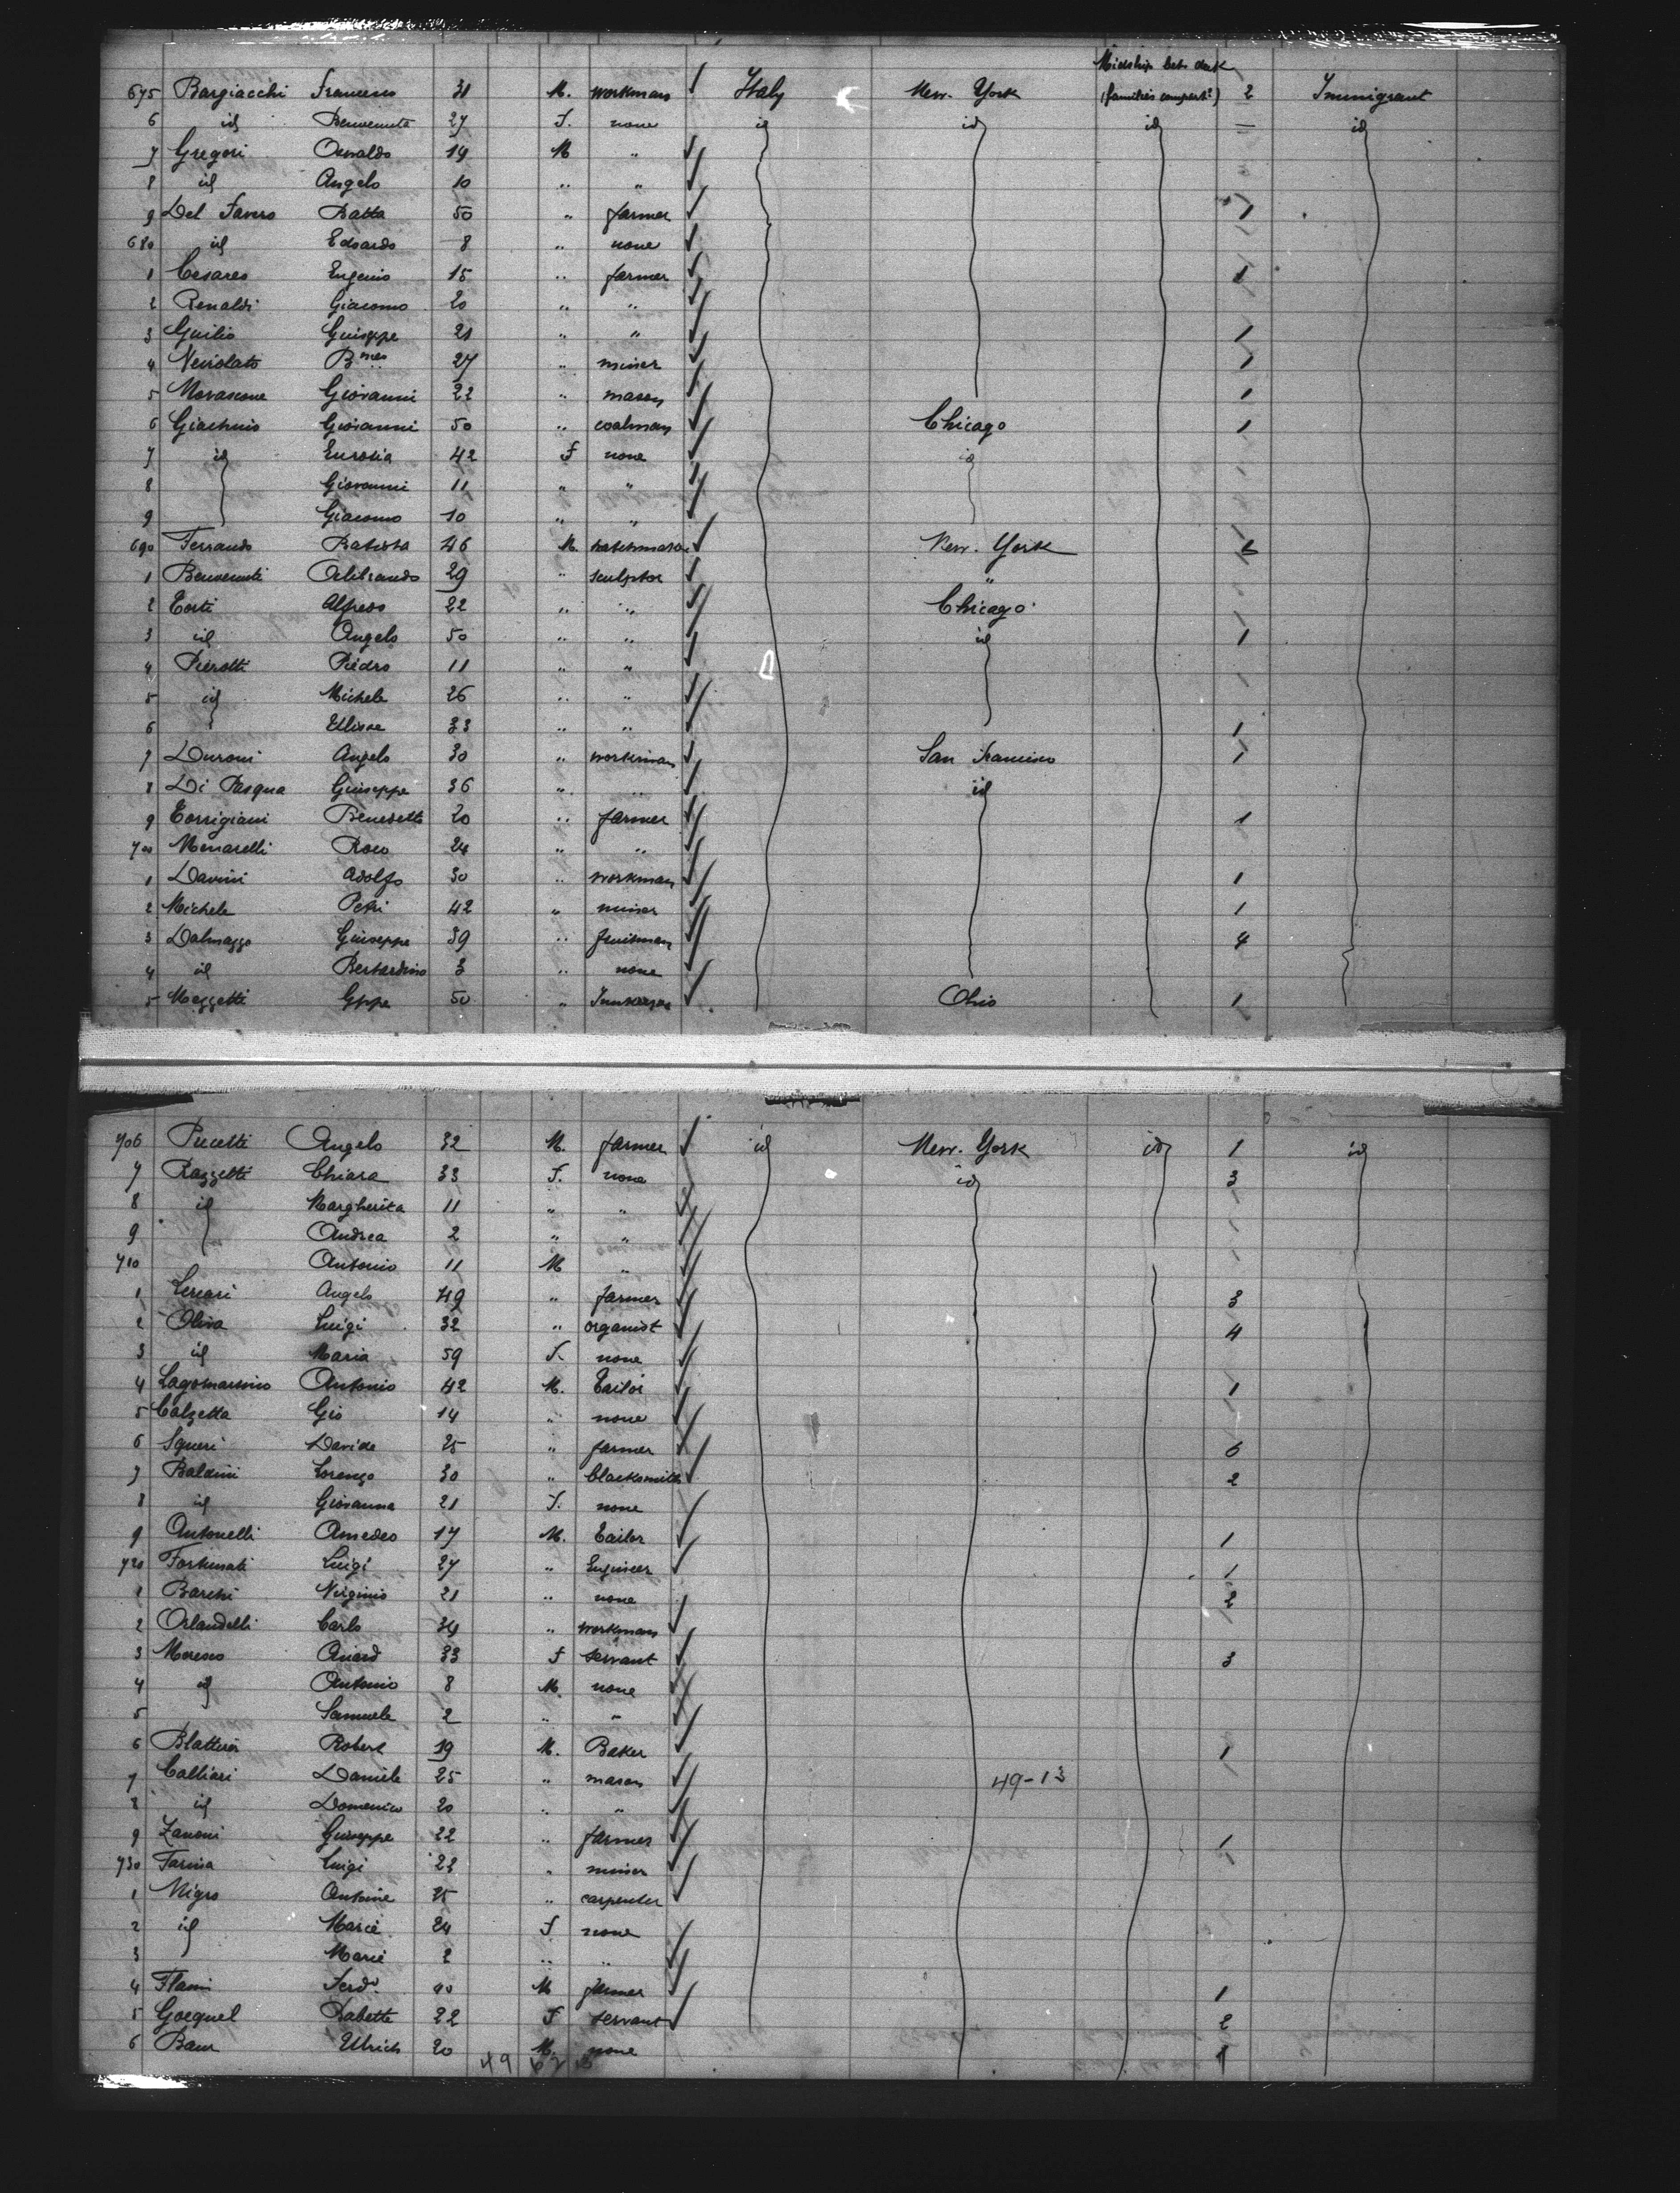 Midship bet. deck
675 Bargiacchi Francesco 31 M. workman Italy New-York (families compart.t) 2 Immigrant
6 id Benvenuta 27 F. none id id id id
7 Gregori Osvaldo 14 M "
8 id Angelo 10 " "
9 Del Favero Batta 50 " farmer 1
680 id Edoardo 8 " none
1 Cesares Eugenio 15 " farmer 1
2 Renaldi Giacomo 20 " "
3 Guilio Guiseppe 21 " " 1
4 27 " miner 1
5 Morascone Giovanni 22 " mason 1
6 Giovanni 50 " coalman Chicago 1
7 id Eurosia 42 F none id
8 Giovanni 11 " "
9 Giacomo 10 " "
690 Ferrando Batista 46 M. New-York
1 Benvenuti 29 " sculptor "
2 Torti Alfredo 22 " " Chicago
3 id Angelo 50 " " id 1
4 Pierotti Piedro 11 " "
5 id Michele 26 " "
6 Ulisse 33 " " 1
7 Duroni Angelo 30 " workman San Francisco 1
8 Di Pasqua Guiseppe 36 " " id
9 Torrigiani Benedetto 20 " farmer 1
700 Menarelli Roco 24 " "
1 Davini Adolfo 30 " workman 1
2 Michele Petri 42 " miner 1
3 Dalmazzo Guiseppe 39 " fruitman 4
4 id Bernardino 3 " none
5 Mezzetti Gppe 50 " Ohio 1
706 Pucetti Angelo 32 M. farmer id New-York id 1 id
7 Razzetti Chiara 33 F. none id 3
8 id Margherita 11 " "
9 Andrea 2 " "
710 Antonio 11 M "
1 Lercari Angelo 49 " farmer 3
2 Oliva Luigi 32 " organist 4
3 id Maria 59 F. none
4 Lagomarsino Antonio 42 M. Tailor 1
5 Calzetta Gio 14 " none
6 Squeri Davide 25 " farmer 6
7 Baldini Lorenzo 30 " blacksmith 2
8 id Giovanna 21 F. none
9 Antonelli Amedeo 17 M. Tailor 1
720 Fortunati Luigi 27 " Engineer 1
1 Barchi Virginio 21 " none 2
2 Orlandelli Carlo 34 " workman
3 Moresco 33 F servant 3
4 id Antonio 8 M. none
5 Samuele 2 " "
6 Robert 19 M. Baker 1
7 Calliari Daniele 25 " mason 49-13
8 id Domenico 20 " "
9 Zanoni Guiseppe 22 " farmer 1
730 Farina Luigi 22 " miner
1 Nigro Antoine 25 " carpenter
2 id Marie 24 F none
3 Marie 2 " "
4 Ferd. 40 M farmer 1
5 Goequel Babette 22 F servant 2
6 Baur Ulrich 20 M. none 1
49